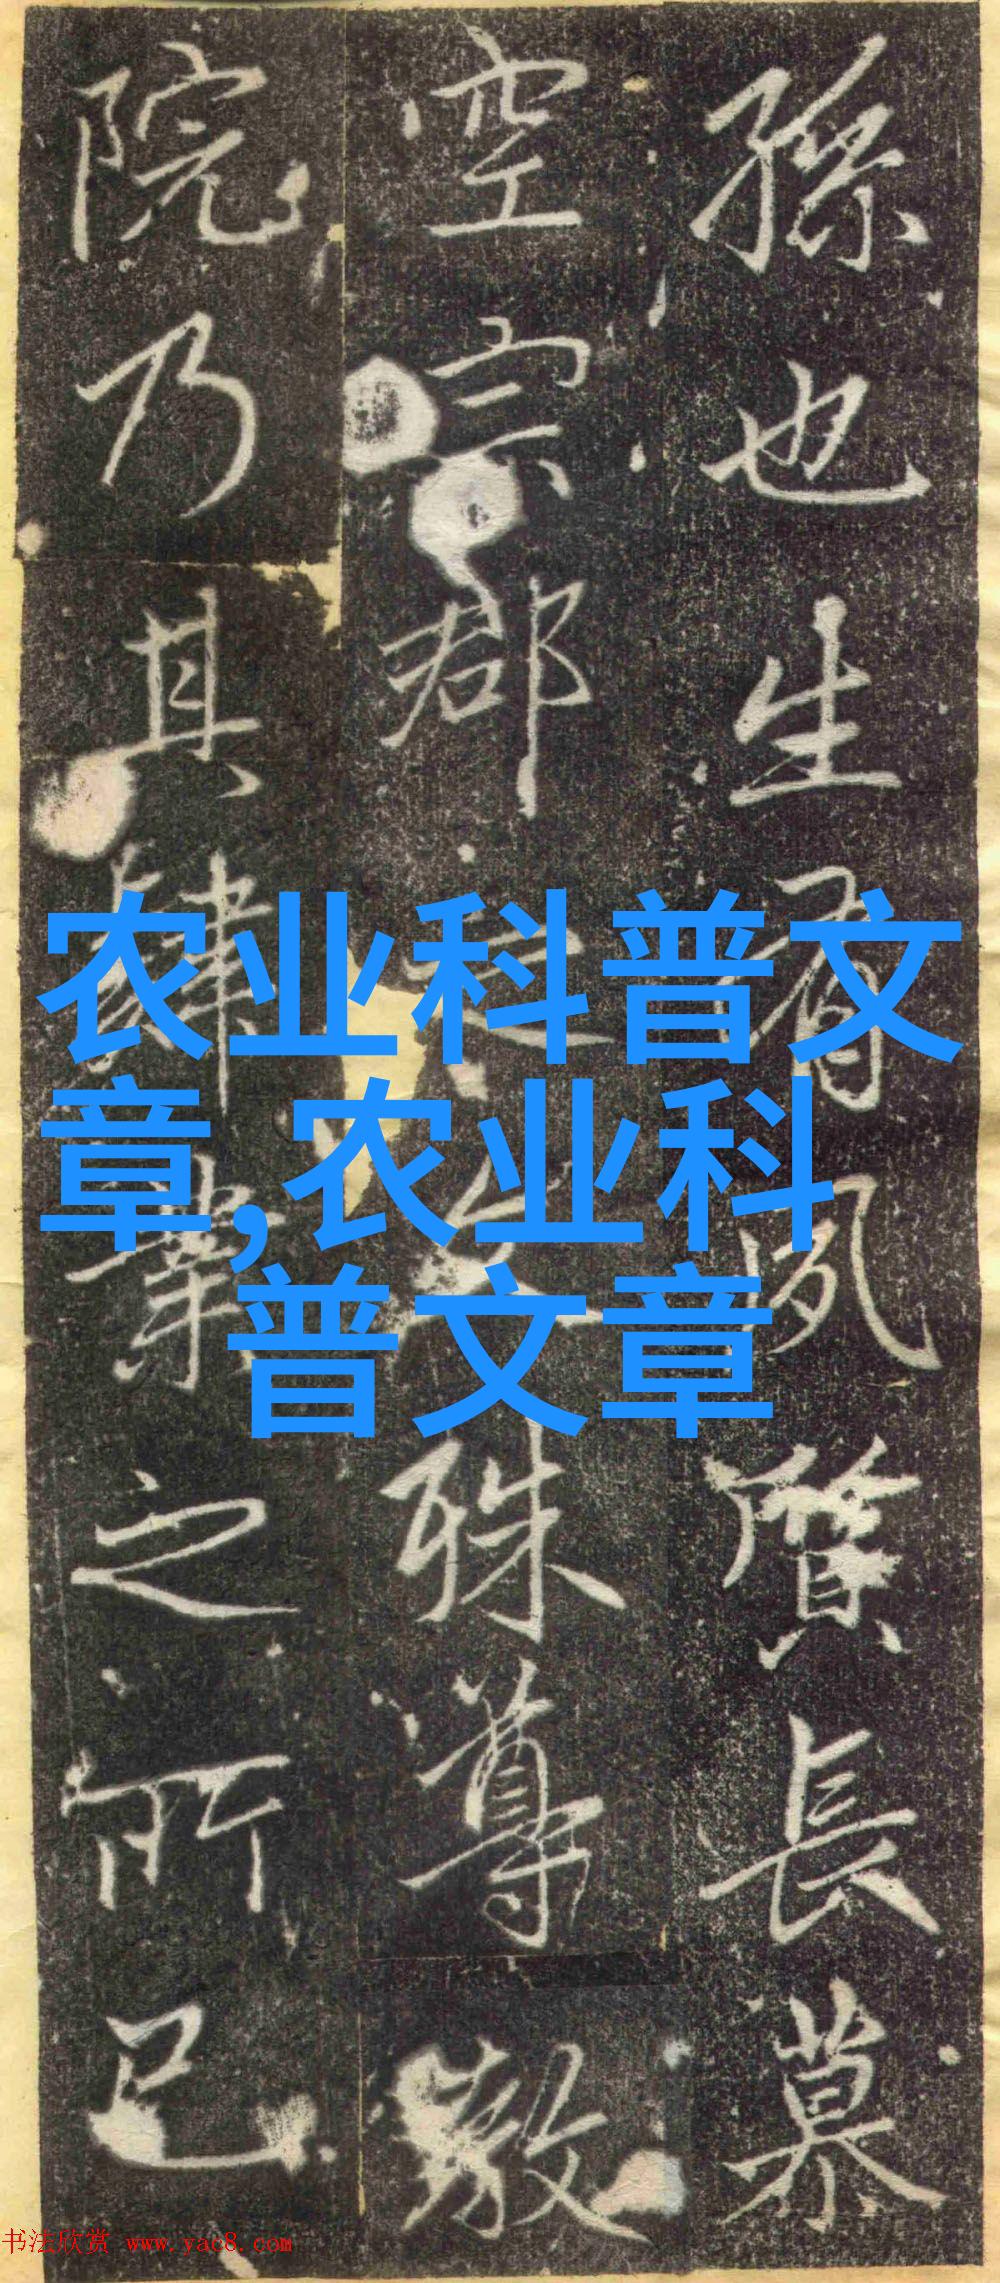 孫也生有夙質長慕
空宗郡殊尊敬
院乃其肄業之所已
农业科普文
章,农业科
普文章
书法欣赏 www.yac8.com